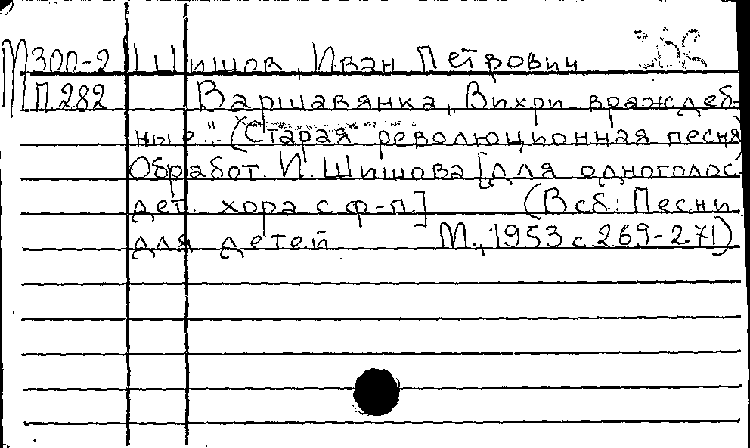 М300-2 Шишов, Иван Петрович
П282 Варшавянка, Вихри враждеб-
ные". (Старая революционная песня)
Обработ. И. Шишова [для одноголос.
дет. хора с ф-п.] (В сб: Песни
для детей М., 1953 с 269-271)